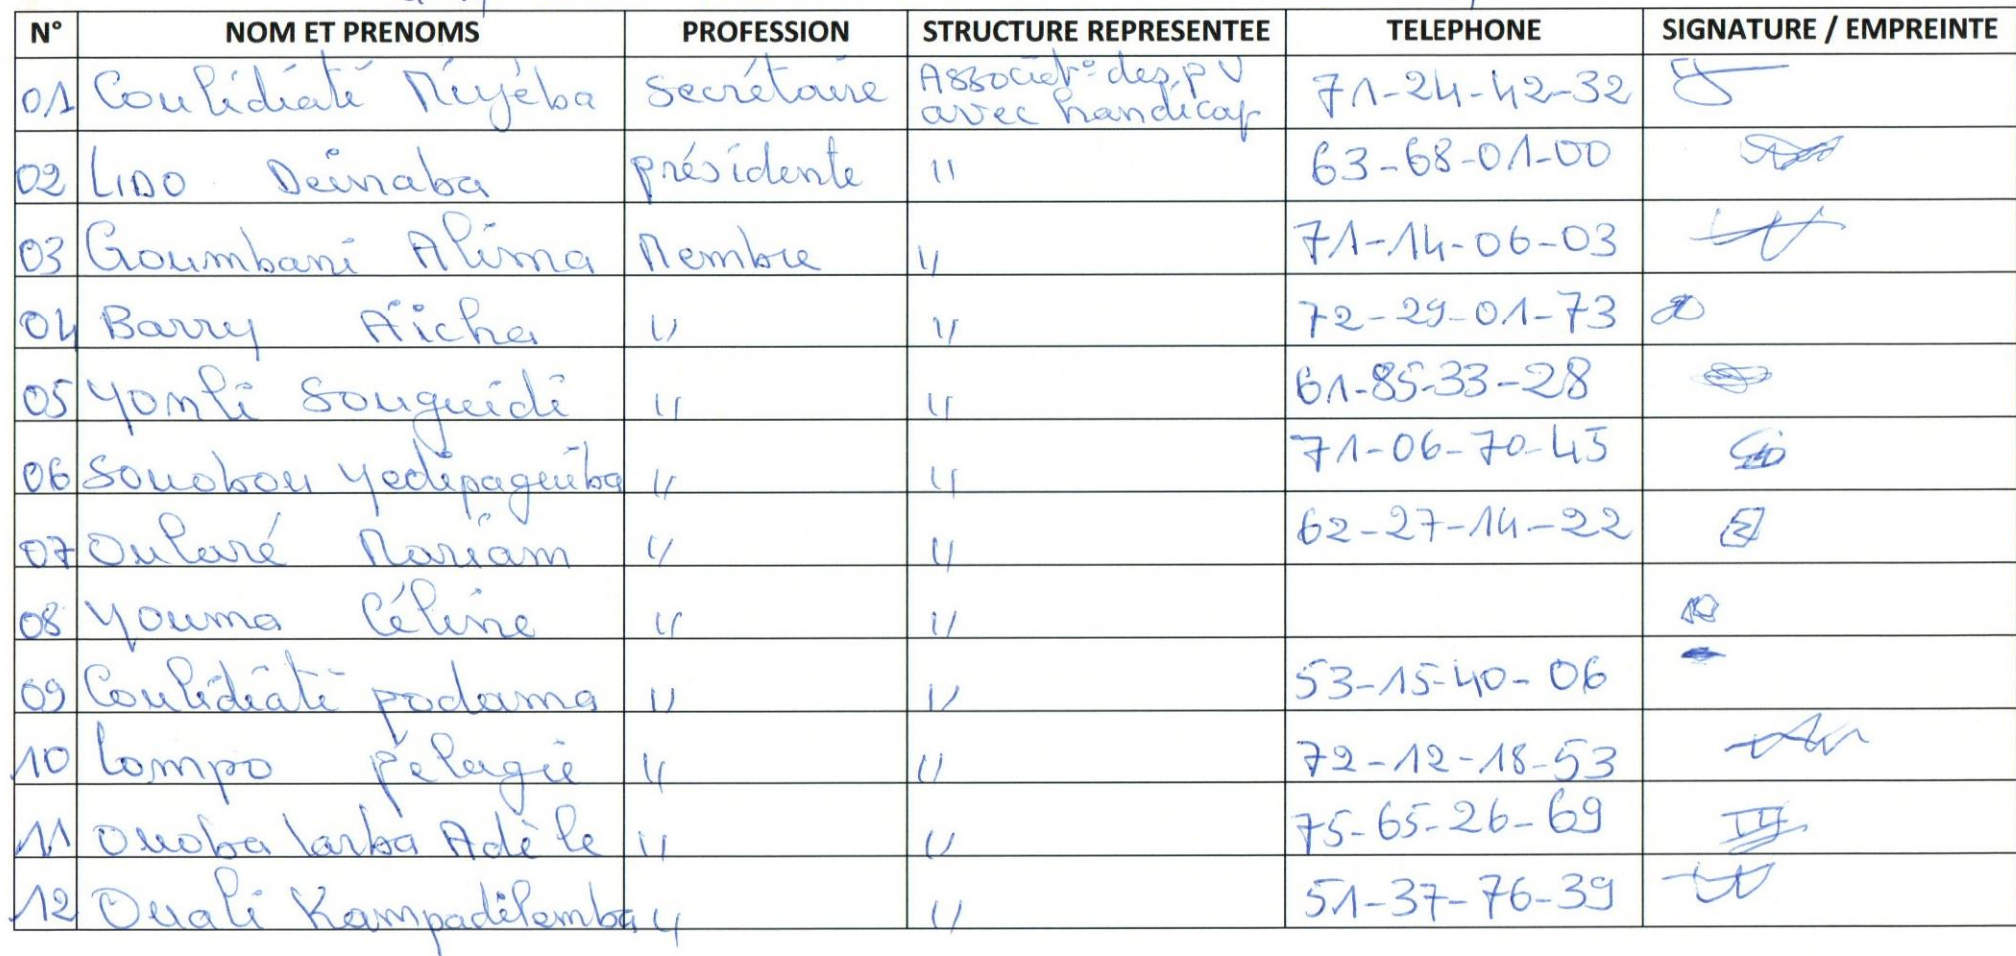 N° NOM ET PRENOMS PROFESSION STRUCTURE REPRESENTEE TELEPHONE SIGNATURE / EMPREINTE
01 Coulidiati Miyéba Secrétaire Associat° des P V avec handicap 71-24-42-32
02 LIDO Deinaba présidente " 63-68-01-00
03 Goumbani Alima Membre " 71-14-06-03
04 Barry Aïcha " " 72-29-01-73
05 Yonli Souguidi " " 61-85-33-28
06 Sonobou Yedipaguiba " " 71-06-70-45
07 Oularé Mariam " " 62-27-14-22
08 Youma Céline " "
09 Coulidiati podama " " 53-15-40-06
10 Lompo pélagie " " 72-12-18-53
11 Ouoba Larba Adèle " " 75-65-26-69
12 Ouali Kampadilemba " " 51-37-76-39